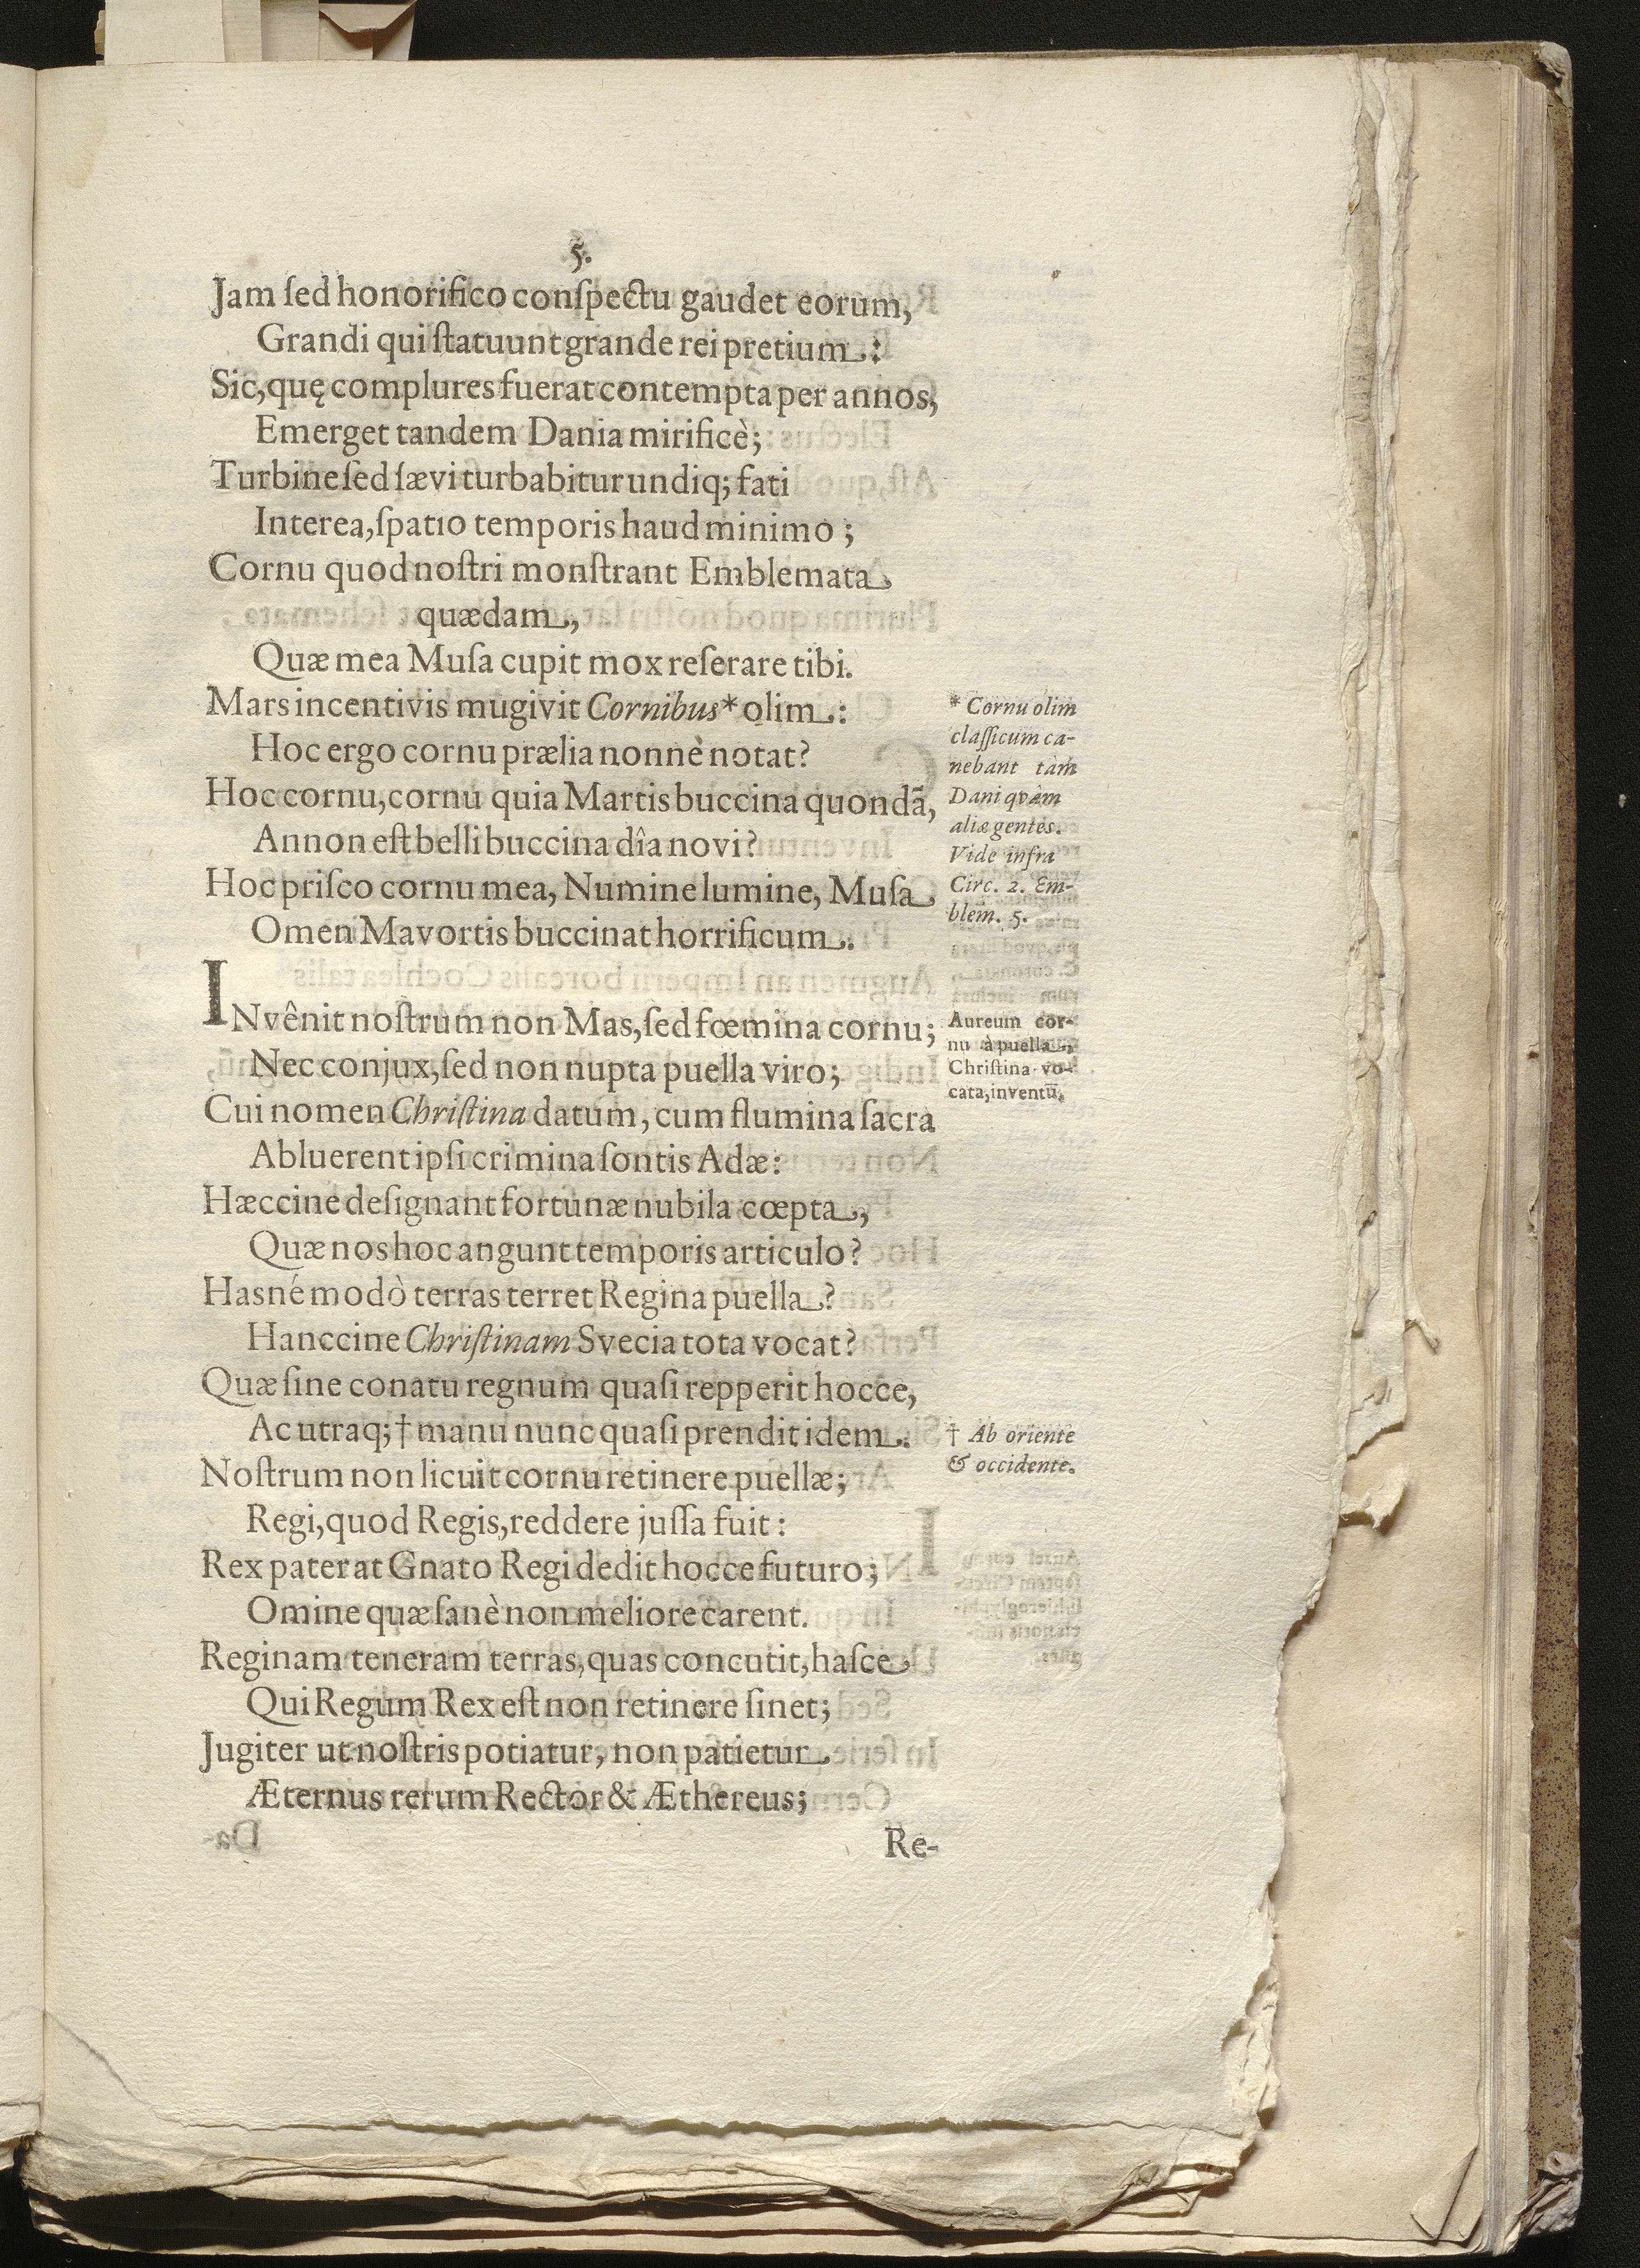 5.
Jam ſed honorifico conſpectu gaudet eorum,
Grandi qui ſtatuunt grande rei pretium:
Sic, quę complures fuerat contempta per annos,
Emerget tandem Dania mirificè;
Turbine ſed ſævi turbabitur undiq; fati
Interea, ſpatio temporis haud minimo;
Cornu quod noſtri monſtrant Emblemata
quædam,
Quæ mea Muſa cupit mox reſerare tibi.
Mars incentivis mugivit Cornibus* olim:
Hoc ergo cornu prælia nonnè notat?
Hoc cornu, cornu quia Martis buccina quondã,
Annon eſt belli buccina dîa novi?
Hoc priſco cornu mea, Numine lumine, Muſa
Omen Mavortis buccinat horrificum.
* Cornu olim
claſſicum ca-
nebant tàm
Dani qvàm
aliæ gentes.
Vide infra
Circ. 2. Em-
blem. 5.
INvênit noſtrum non Mas, ſed fœmina cornu;
Nec conjux, ſed non nupta puella viro;
Cui nomen Chriſtina datum, cum flumina ſacra
Abluerent ipſi crimina ſontis Adæ:
Hæccine deſignant fortunæ nubila cœpta,
Quæ nos hoc angunt temporis articulo?
Hasné modò terras terret Regina puella?
Hanccine Chriſtinam Svecia tota vocat?
Quæ ſine conatu regnum quaſi repperit hocce,
Ac utraq; † manu nunc quaſi prendit idem.
Noſtrum non licuit cornu retinere puellæ;
Regi, quod Regis, reddere juſſa fuit:
Rex pater at Gnato Regi dedit hocce futuro;
Omine quæ ſanè non meliore carent.
Reginam teneram terras, quas concutit, haſce
Qui Regum Rex eſt non retinere ſinet;
Jugiter ut noſtris potiatur, non patietur
Æternus rerum Rector & Æthereus;
Aureum cor-
nu à puella,
Chriſtina vo-
cata, inventũ.
† Ab oriente
& occidente.
Re-